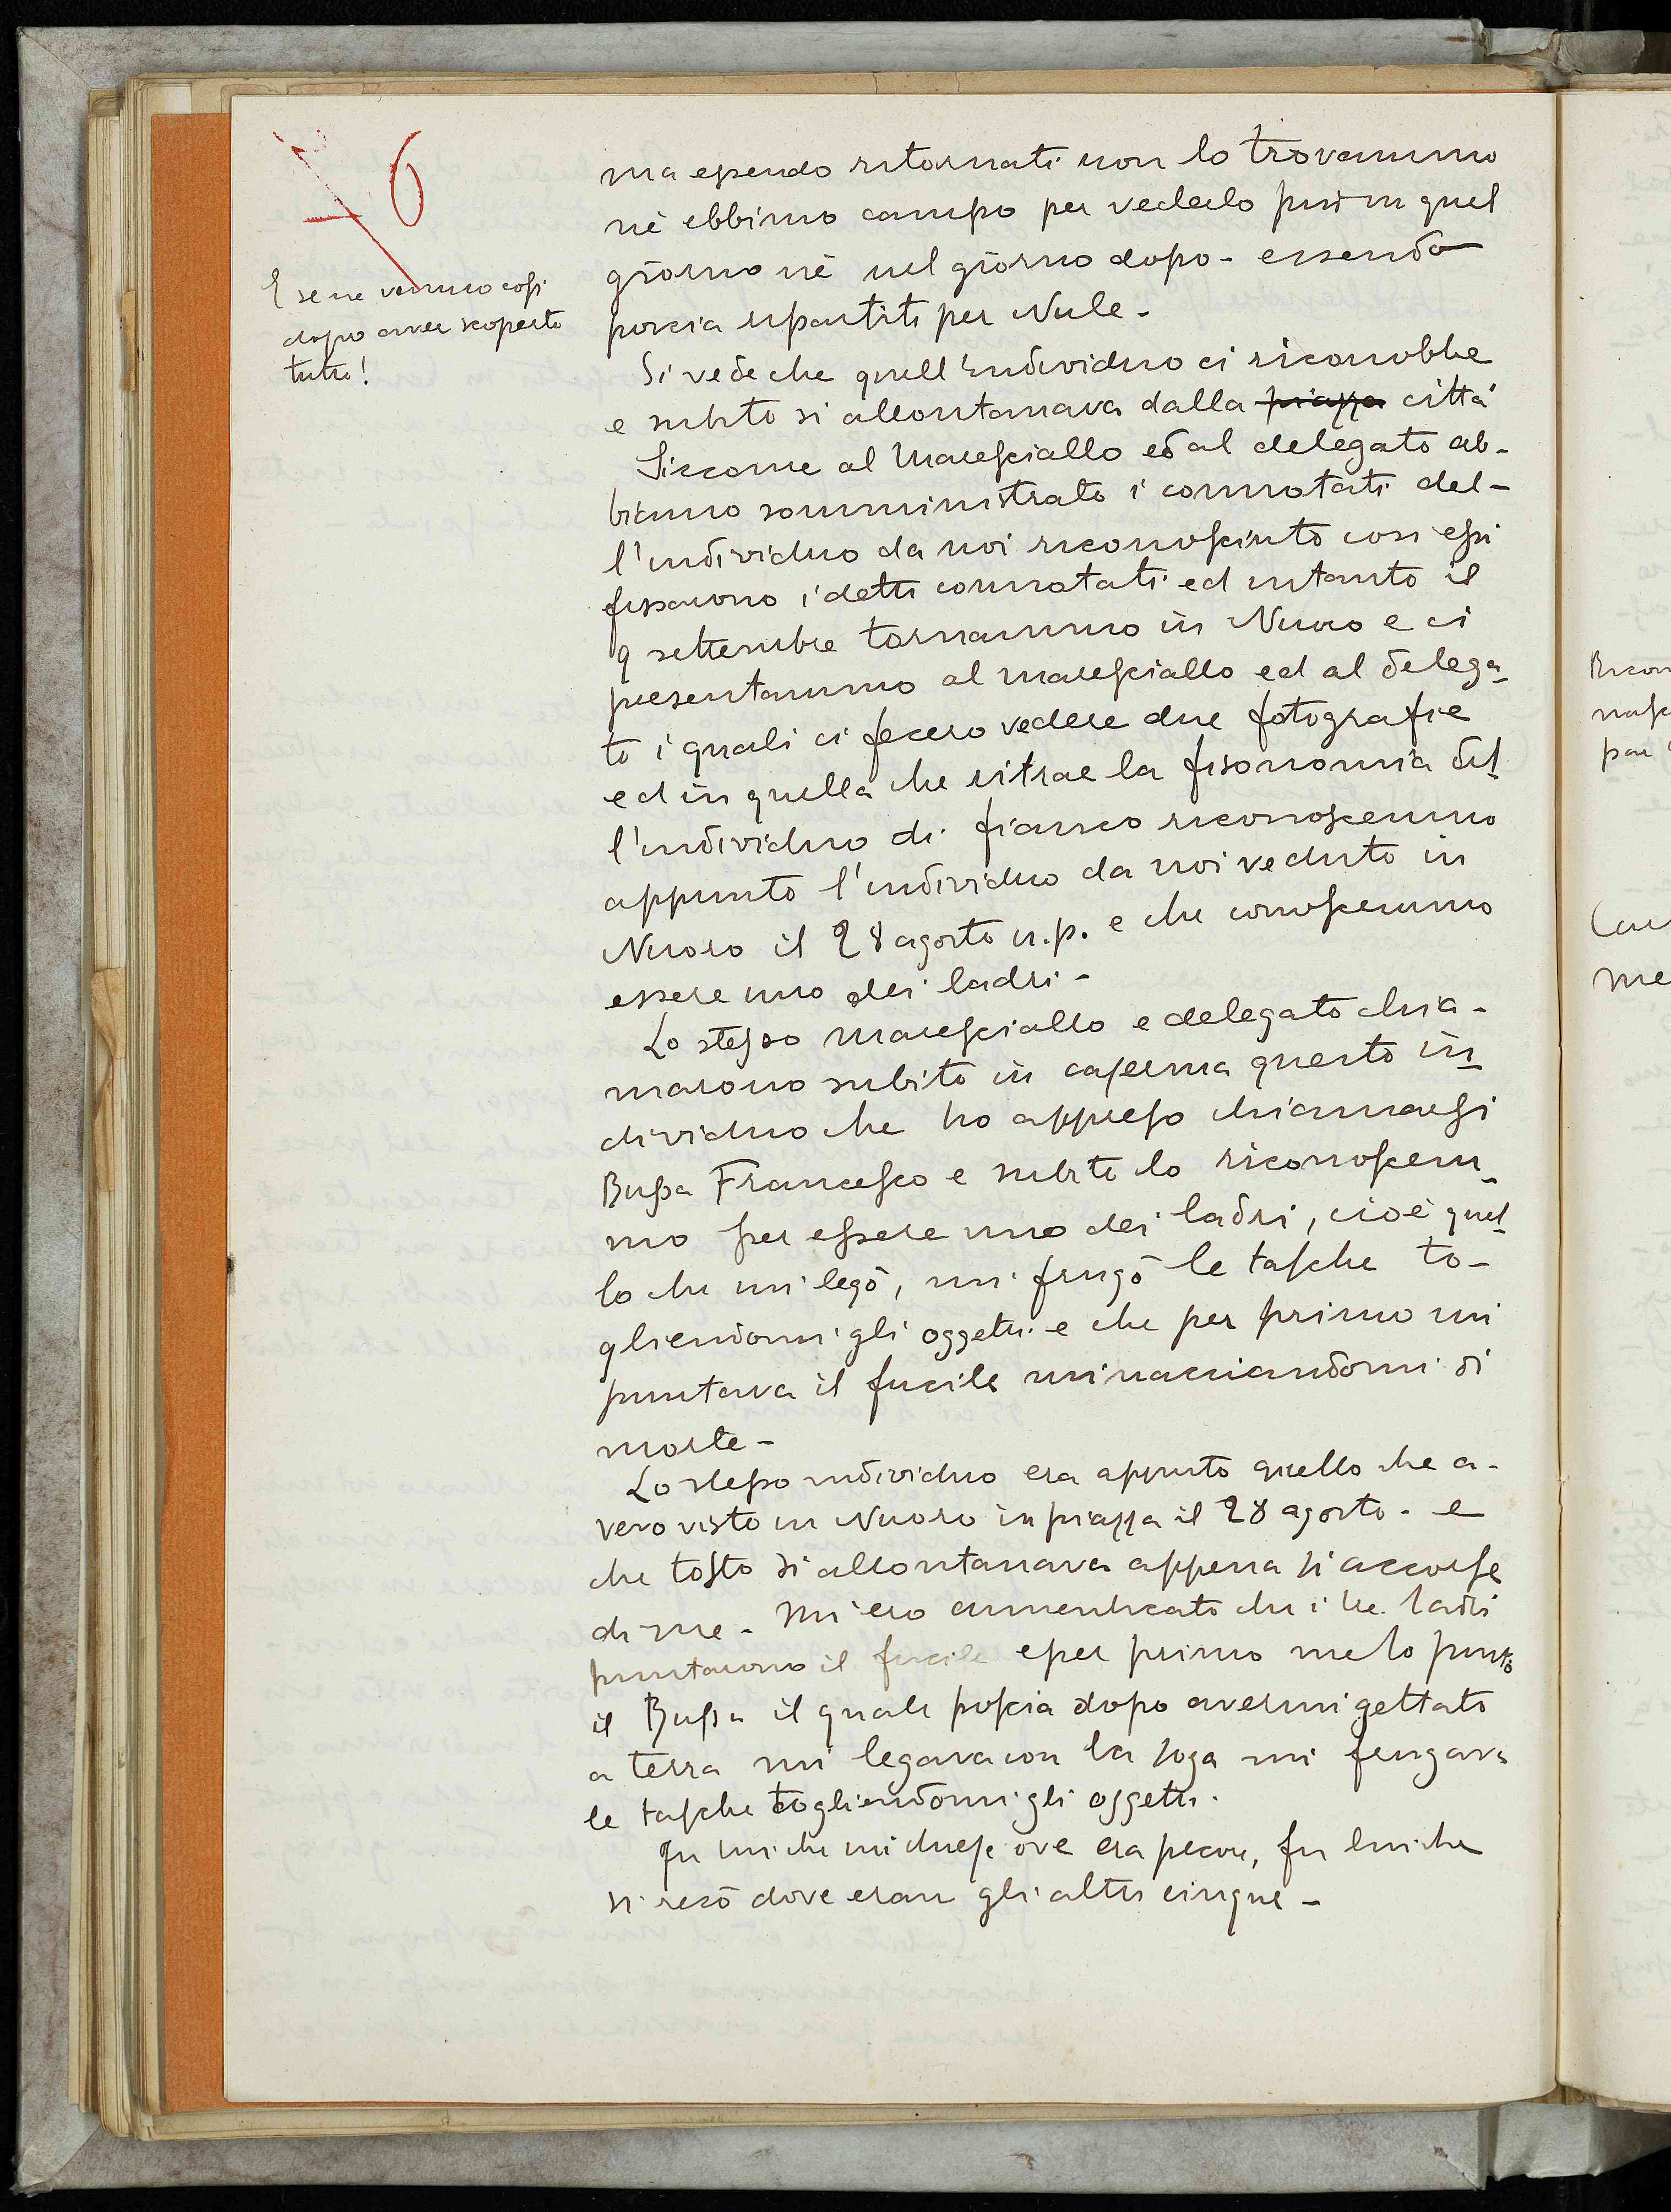 6
E se ne vanno così
dopo aver scoperto
tutto!
ma essendo ritornati non lo trovammo
nè ebbimo campo per vederlo più in quel
giorno nè nel giorno dopo - essendo
poscia ripartiti per Nule -
Si vede che quell'individuo ci riconobbe
e subito si allontanava dalla piazza città
Siccome al Maresciallo ed al delegato ab-
biamo somministrato i connotati del-
l'individuo da noi riconosciuto così essi
fissarono i detti connotati ed intanto il
9 settembre tornammo in Nuoro e ci
presentammo al maresciallo ed al delega-
to i quali ci fecero vedere due fotografie
ed in quella che ritrae la fisonomia del-
l'individuo di fianco riconoscemmo
appunto l'individuo da noi veduto in
Nuoro il 28 agosto u.p. e che conoscemmo
essere uno dei ladri -
Lo stesso Maresciallo e delegato chia-
marono subito in caserma questo in-
dividuo che ho appreso chiamarsi
Bussa Francesco e subito lo riconoscem-
mo per essere uno dei ladri, cioè quel-
lo che mi legò, mi frugò le tasche to-
gliendomi gli oggetti e che per primo mi
puntava il fucile minacciandomi di
morte -
Lo stesso individuo era appunto quello che a-
vero visto in Nuoro in piazza il 28 agosto - e
che tosto si allontanava appena si accorse
di me - Mi ero dimenticato che i tre ladri
puntarono il fucile e per primo me lo puntò
il Bussa il quale poscia dopo avermi gettato
a terra mi legava con la soga mi frugava
le tasche togliendomi gli oggetti.
Fu lui che mi chiese ove era pecore, fu lui che
si recò dove eran gli altri cinque -